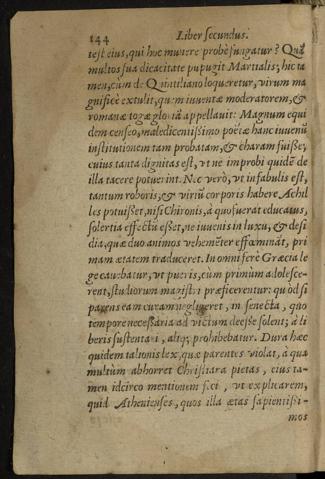 144 Liber secundus.
test eius, qui hoc munere probè fungatur? Quā
multos sua dicacitate pupugit Martialis; hic ta
men, cum de Quintiliano loqueretur, virum ma
gnificè extulit, quem iuuentæ moderatorem, &
romanæ togæ gloriā appellauit: Magnum equi
dem censeo, maledicentissimo poetæ hanc iuuenū
institutionem tam probatam, & charam fuisse,
cuius tanta dignitas est, vt ne improbi quidē de
illa tacere potuerint. Nec verò, vt in fabulis est,
tantum roboris, & viriū corporis habere Achil
les potuisset, nisi Chironis, à quo fuerat educatus,
solertia effectū esset, ne iuuenis in luxu, & desi
dia, quæ duo animos vehemēter effœminat, pri
mam ætatem traduceret. In omni ferè Græcia le
ge cauebatur, vt pueris, cum primùm adolesce-
rent, studiorum magistri præficerentur: quòd si
parens eam curam negligeret, in senecta, quo
tempore necessaria ad victum deesse solent; à li
beris sustentari, aliq; prohibebatur. Dura hæc
quidem talionis lex, quæ parentes violat, à qua
multùm abhorret Christiana pietas, eius ta-
men idcirco mentionem feci, vt explicarem,
quid Athenienses, quos illa ætas sapientissi-
mos